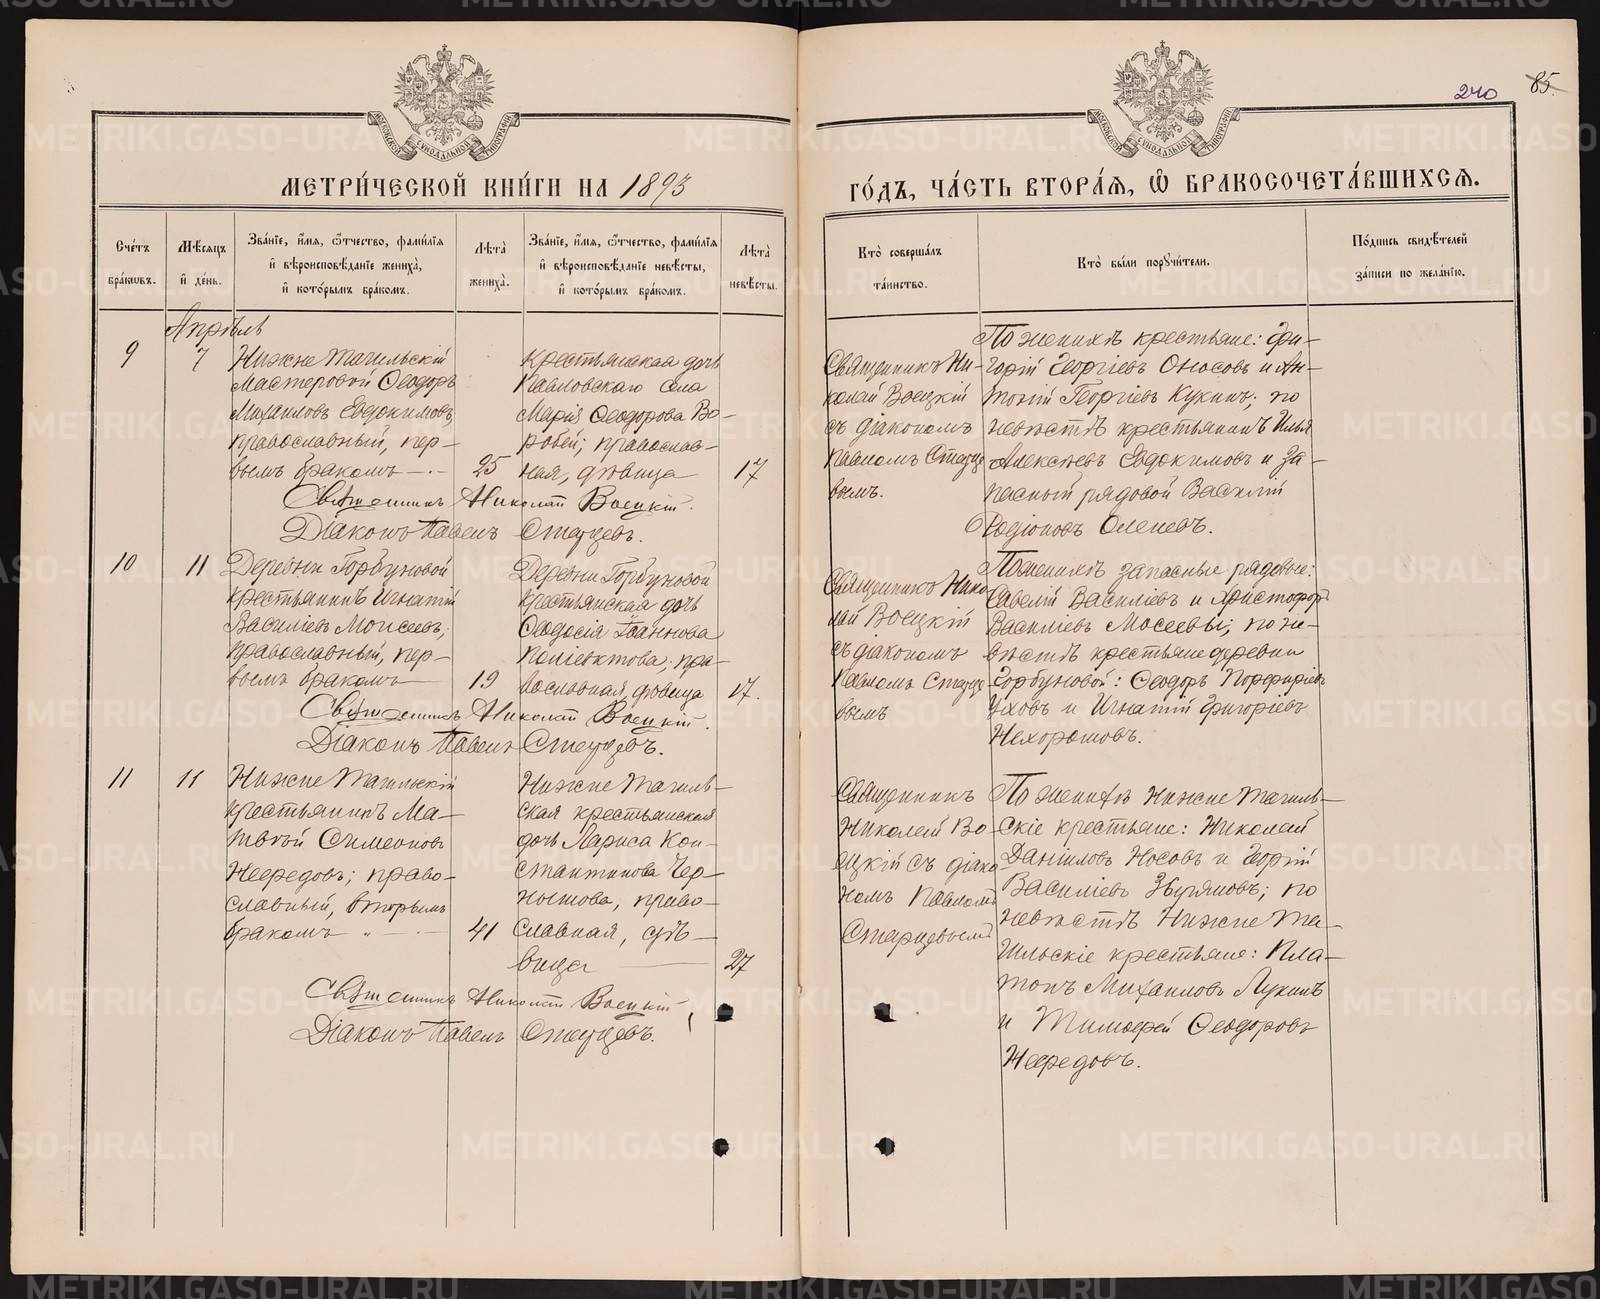 240 85.
МЕТРИ́ЧЕСКОЙ КНИ́ГИ НА 1893
ГО́ДЪ, ЧА́СТЬ ВТОРА́Ѧ, Ѽ БРАКОСОЧЕТА́ВШИХСѦ.
Сче́тъ бра́кѡвъ.
Мѣ́сѧцъ и҆ де́нь.
Зва́нїе, и҆́мѧ, ѻ҆́тчество, фами́лїѧ
и҆ вѣроисповѣ́данїе жениха̀,
и҆ кото́рымъ бра́комъ.
Лѣ́та жениха̀.
Зва́нїе, и҆́мѧ, ѻ҆́тчество, фами́лїѧ
и҆ вѣроисповѣ́данїе невѣ́сты,
и҆ кото́рымъ бра́комъ.
Лѣ́та невѣ́сты.
Кто̀ соверша́лъ
та́инство.
Кто̀ бы́ли порꙋчи́тели.
По́дпись свидѣ́телей
за́писи по жела́нїю.
Апрѣль
9
7
Нижне Тагильскій
мастеровой Ѳеодоръ
Михаиловъ Евдокимовъ,
православный, пер-
вымъ бракомъ
25
Крестьянская дочь
Павловскаго села
Марія Ѳеодорова Во-
робей; православ-
ная, дѣвица
17
Священникъ Ни-
колай Воецкій
съ діакономъ
Павломъ Старце-
вымъ.
По женихѣ крестьяне: Гри-
горій Георгіевъ Оносовъ и Ан-
тоній Георгіевъ Кукинъ; по
невѣстѣ крестьянинъ Илья
Алексѣевъ Евдокимовъ и за-
пасный рядовой Василій
Родіоновъ Оленевъ.
Священникъ Николай Воецкій.
Діаконъ Павелъ Старцевъ.
10
11
Деревни Горбуновой
крестьянинъ Игнатій
Василіевъ Моисеевъ;
православный, пер-
вымъ бракомъ
19
Деревни Горбуновой
крестьянская дочь
Ѳеодосія Іоаннова
Поліевктова; пра-
вославная, дѣвица
17.
Священникъ Нико-
лай Воецкій
съ діакономъ
Павломъ Старце-
вымъ
По женихѣ запасные рядовые:
Савелій Василіевъ и Христофоръ
Василіевъ Мосеевы; по не-
вѣстѣ крестьяне деревни
Горбуновой: Ѳеодоръ Порфиріевъ
Уховъ и Игнатій Григоріевъ
Нехорошовъ.
Священникъ Николай Воецкій.
Діаконъ Павелъ Старцевъ.
11
11
Нижне Тагильскій
крестьянинъ Ма-
твѣй Симеоновъ
Нередовъ; право-
славный, вторымъ
бракомъ
41
Нижне Тагиль-
ская крестьянская
дочь Лариса Кон-
стантинова Чер-
нышова, право-
славная, дѣ-
вица
27
Священникъ
Николай Во-
ецкій съ діако-
номъ Павломъ
Старцевымъ
По женихѣ Нижне Тагиль-
скіе крестьяне: Николай
Даніиловъ Носовъ и Георгій
Василіевъ Звѣряновъ; по
невѣстѣ Нижне Та-
гильскіе крестьяне: Пла-
тонъ Михаиловъ Лукинъ
и Тимофей Ѳеодоровъ
Нередовъ.
Священникъ Николай Воецкій
Діаконъ Павелъ Старцевъ.